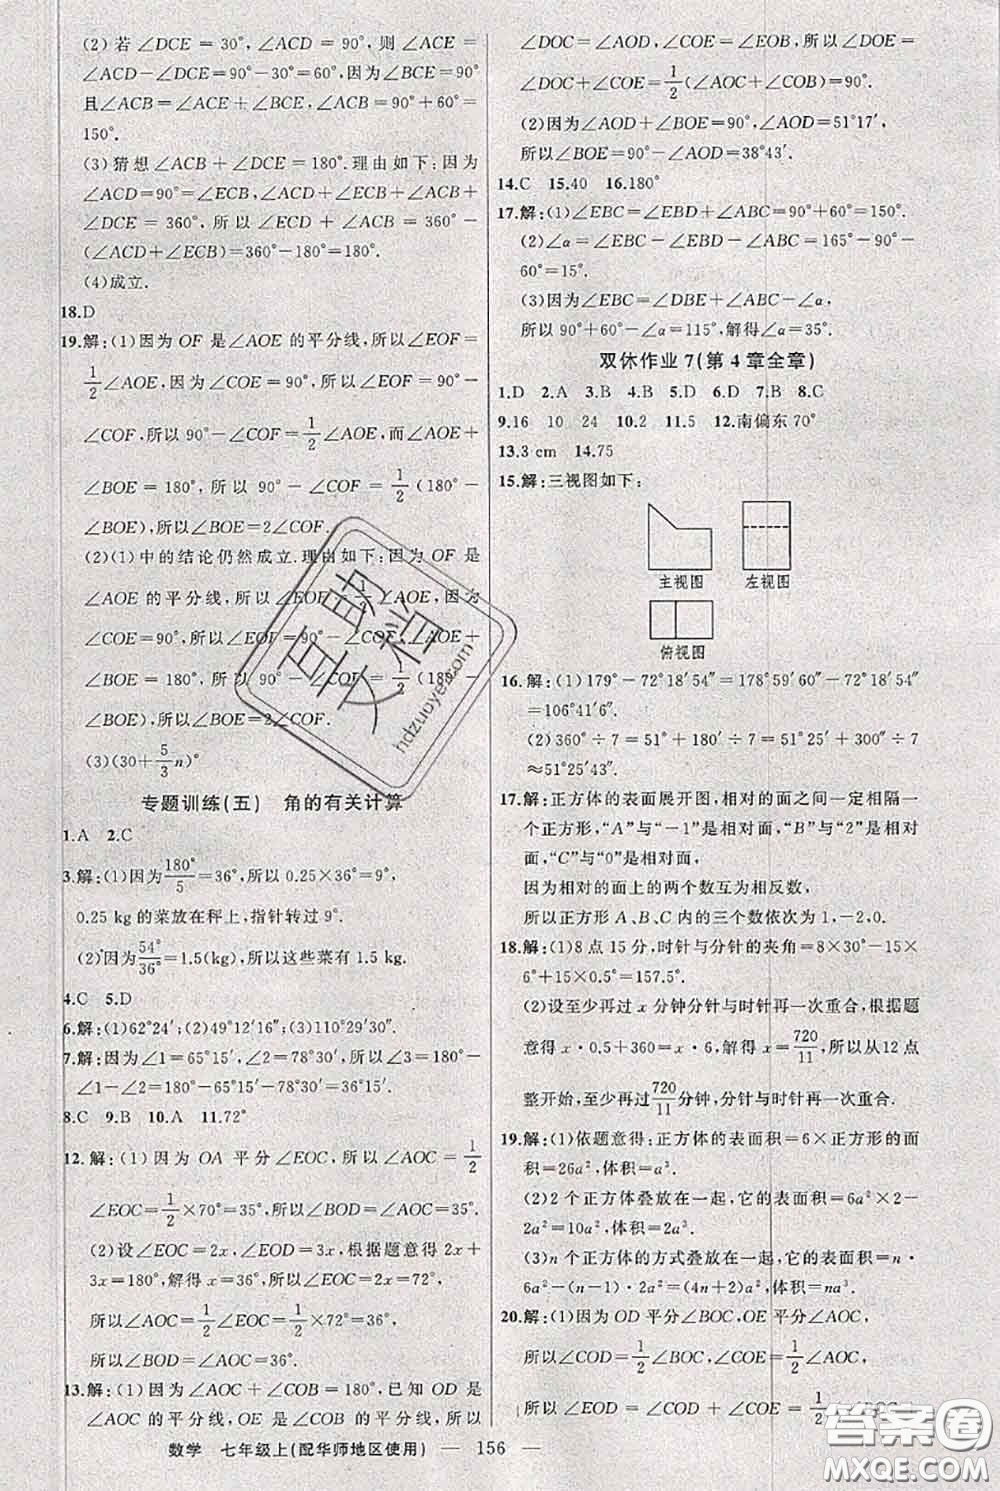 (2) 若 ∠DCE = 30°, ∠ACD = 90°, 则 ∠ACE =
∠ACD-∠DCE=90°-30°=60°,因为∠BCE=90°
且∠ACB=∠ACE+∠BCE,所以∠ACB=90°+60°=
150°.
(3)猜想∠ACB+∠DCE=180°.理由如下:因为
∠ACD=90°=∠ECB,∠ACD+∠ECB+∠ACB+
∠DCE = 360°, 所以 ∠ECD + ∠ACB = 360° -
(∠ACD+∠ECB)=360°-180°=180°.
(4)成立.
18.D
19.解:(1)因为 OF 是∠AOE 的平分线,所以∠EOF=
1/2∠AOE,因为∠COE=90°,所以∠EOF=90°-
∠COF,所以90°-∠COF=1/2∠AOE,而∠AOE+
∠BOE = 180°, 所以 90° - ∠COF = 1/2 (180° -
∠BOE),所以∠BOE=2∠COF.
(2)(1)中的结论仍然成立.理由如下:因为 OF 是
∠AOE 的平分线,所以∠EOF=1/2∠AOE,因为∠COE=
90°,所以∠EOF=90°-∠COF,∠AOE+
∠BOE=180°,所以 90°-∠COF=1/2(180°-
∠BOE),所以∠BOE=2∠COF.
(3)(30+5/3n)°
专题训练(五) 角的有关计算
1.A 2.C
3.解:(1)因为180°/5=36°,所以0.25×36°=9°,
0.25 kg的菜放在秤上,指针转过9°.
(2)因为54°/36°=1.5(kg),所以这些菜有1.5 kg.
4.C 5.D
6.解:(1)62°24′;(2)49°12′16″;(3)110°29′30″.
7.解:因为∠1=65°15′,∠2=78°30′,所以∠3=180°-
∠1-∠2=180°-65°15′-78°30′=36°15′.
8.C 9.B 10.A 11.72°
12.解:(1)因为 OA 平分∠EOC,所以∠AOC=1/2
∠EOC=1/2×70°=35°,所以∠BOD=∠AOC=35°.
(2)设∠EOC=2x,∠EOD=3x,根据题意得 2x+
3x=180°,解得x=36°,所以∠EOC=2x=72°,
所以∠AOC=1/2∠EOC=1/2×72°=36°,
所以∠BOD=∠AOC=36°.
13.解:(1)因为∠AOC+∠COB=180°,已知 OD 是
∠AOC 的平分线,OE 是∠COB 的平分线,所以
∠DOC=∠AOD,∠COE=∠EOB,所以∠DOE=
∠DOC+∠COE=1/2(∠AOC+∠COB)=90°.
(2)因为∠AOD+∠BOE=90°,∠AOD=51°17′,
所以∠BOE=90°-∠AOD=38°43′.
14.C 15.40 16.180°
17.解:(1)∠EBC=∠EBD+∠ABC=90°+60°=150°.
(2)∠α=∠EBC-∠EBD-∠ABC=165°-90°-
60°=15°.
(3)因为∠EBC=∠DBE+∠ABC-∠α,
所以90°+60°-∠α=115°,解得∠α=35°.
双休作业7(第4章全章)
1.D 2.A 3.B 4.B 5.D 6.D 7.B 8.C
9.16 10 24 10.2 11.5 12.南偏东70°
13.3 cm 14.75
15.解:三视图如下:
主视图 左视图
俯视图
16.解:(1)179°-72°18′54″=178°59′60″-72°18′54″
=106°41′6″.
(2)360°÷7=51°+180′÷7=51°+25′+300″÷7
≈51°25′43″.
17.解:正方体的表面展开图,相对的面之间一定相隔一
个正方形,“A”与“-1”是相对面,“B”与“2”是相对
面,“C”与“0”是相对面,
因为相对的面上的两个数互为相反数,
所以正方形A、B、C内的三个数依次为1,-2,0.
18.解:(1)8点15分,时针与分针的夹角=8×30°-15×
6°+15×0.5°=157.5°.
(2)设至少再过x分钟分针与时针再一次重合,根据题
意得x·0.5+360=x·6,解得x=720/11,所以从12点
整开始,至少再过720/11分钟,分针与时针再一次重合.
19.解:(1)依题意得:正方体的表面积=6×正方形的面
积=26a²,体积=a³.
(2)2个正方体叠放在一起,它的表面积=6a²×2-
2a²=10a²,体积=2a³.
(3)n个正方体的方式叠放在一起,它的表面积=n·
6a²-(n-1)·2a²=(4n+2)a²,体积=na³.
20.解:(1)因为OD平分∠BOC,OE平分∠AOC,
所以∠COD=1/2∠BOC,∠COE=1/2∠AOC,
所以∠EOD=∠COD+∠COE=1/2
数学 七年级上(配华师地区使用) — 156 —
直助文档
hdzuoye.com
答案圈
MXQE.COM